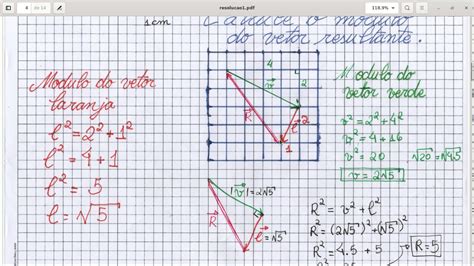 resolucao1.pdf
4 de 14
118.9%
1cm
Calcule o módulo
do vetor resultante.
Modulo do vetor
laranja
l² = 2² + 1²
l² = 4 + 1
l² = 5
l = √5
4
2
v
R
l
2
1
Modulo do
vetor verde
v² = 2² + 4²
v² = 4 + 16
v² = 20
√20 = √4.5
v = 2√5
|v| = 2√5
R
l = √5
R² = v² + l²
R² = (2√5)² + (√5)²
R² = 4.5 + 5
R = 5